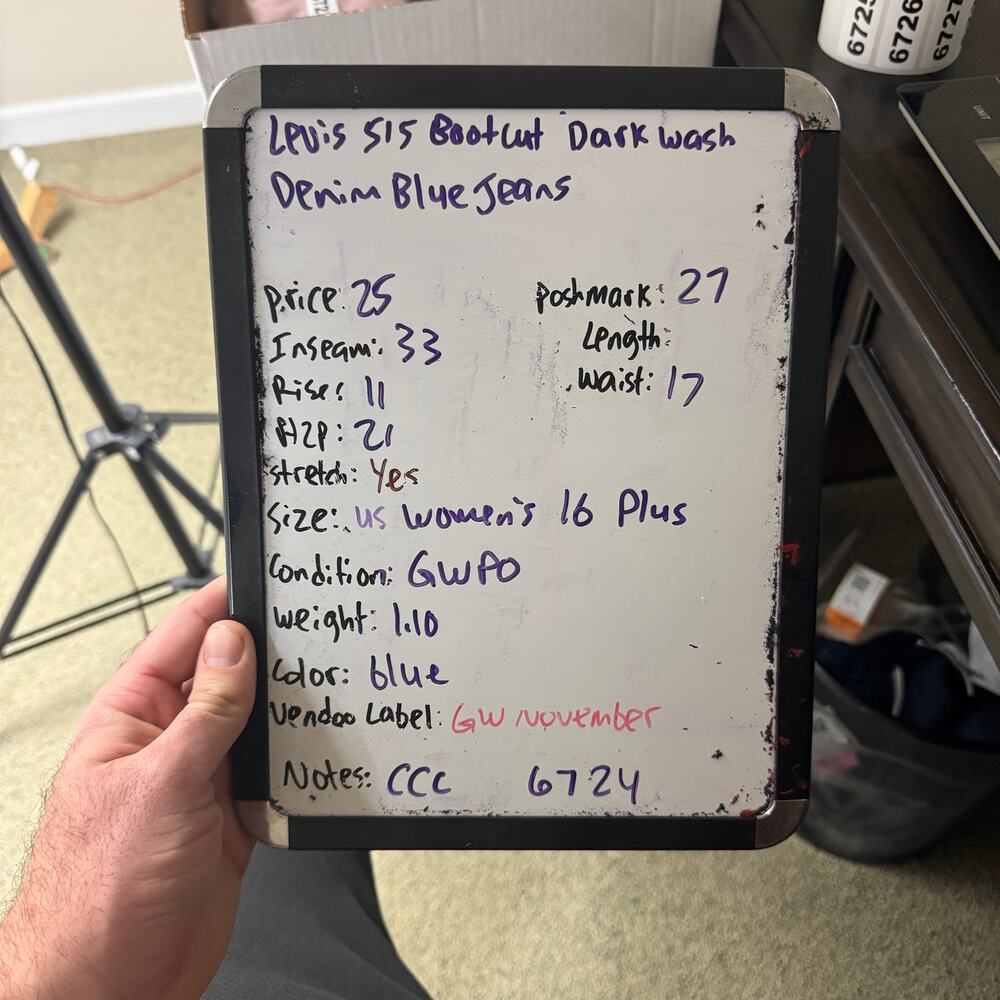 672
6725
6726
6727
UNIT
Levis 515 Bootcut Dark wash
Denim Blue Jeans
price: 25
Poshmark: 27
Inseam: 33
Length:
Rise: 11
Waist: 17
H2P: 21
stretch: Yes
Size: US Women's 16 Plus
Condition: GWPO
Weight: 1.10
Color: blue
Vendoo Label: GW November
Notes: CCC 6724